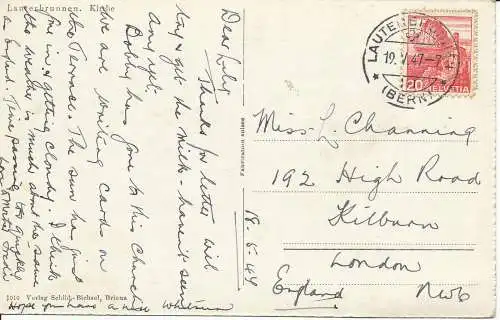 Lauterbrunnen. Kirche
Dear Lily
Thanks for letter will
try & get the milk - haven't seen
any yet.
Bobby has gone to this Church
We are writing cards on
the Terrace. The sun has just
gone in & getting cloudy. I think
the weather is much about the same
as England. Time passing too quickly
Love
Hope you have a nice Whitsun
1010 Verlag Schild-Bichsel, Brienz
Fabrication suisse
LAUTERBRUNNEN
19. V. 47-7
(BERN)
20
HELVETIA
Miss L. Channing
192 High Road
Kilburn
London
England NW6
18.5.47